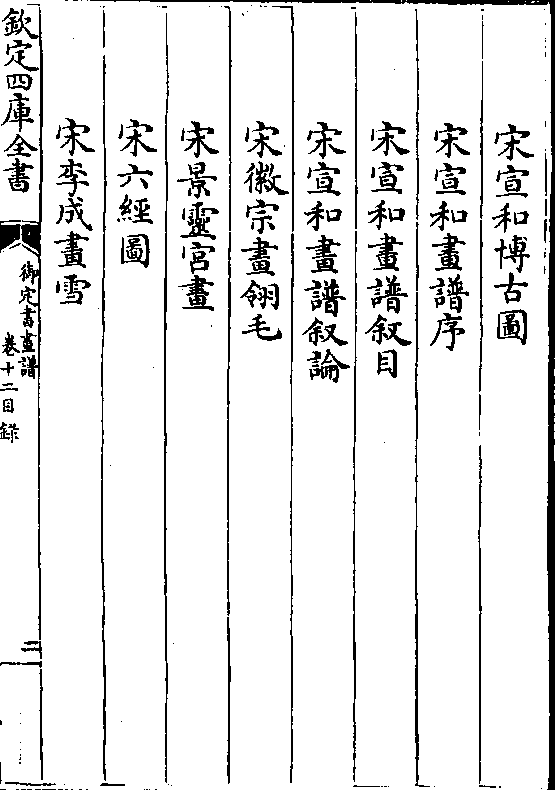 宋宣和博古圖
宋宣和畫譜序
宋宣和畫譜叙目
宋宣和畫譜叙論
宋徽宗畫翎毛
宋景靈宮畫
宋六經圖
宋李成畫雪
欽定四庫全書
御定書畫譜
卷十二目錄
二